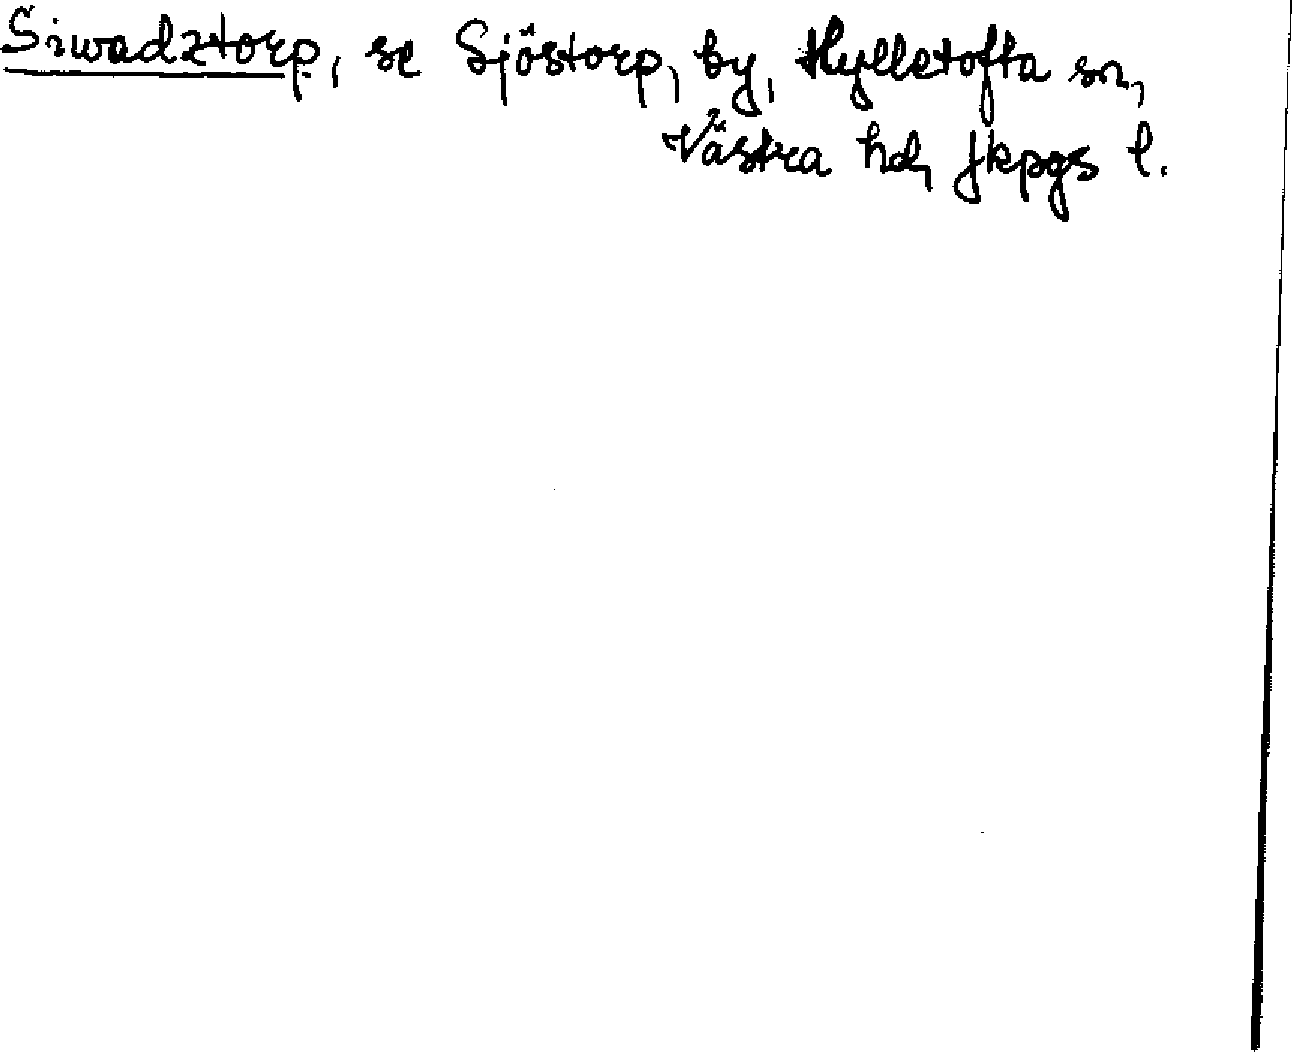 Siwadztorp, se Sjöstorp, by, Hylletofta sn,
Västra hd, Jkpgs l.